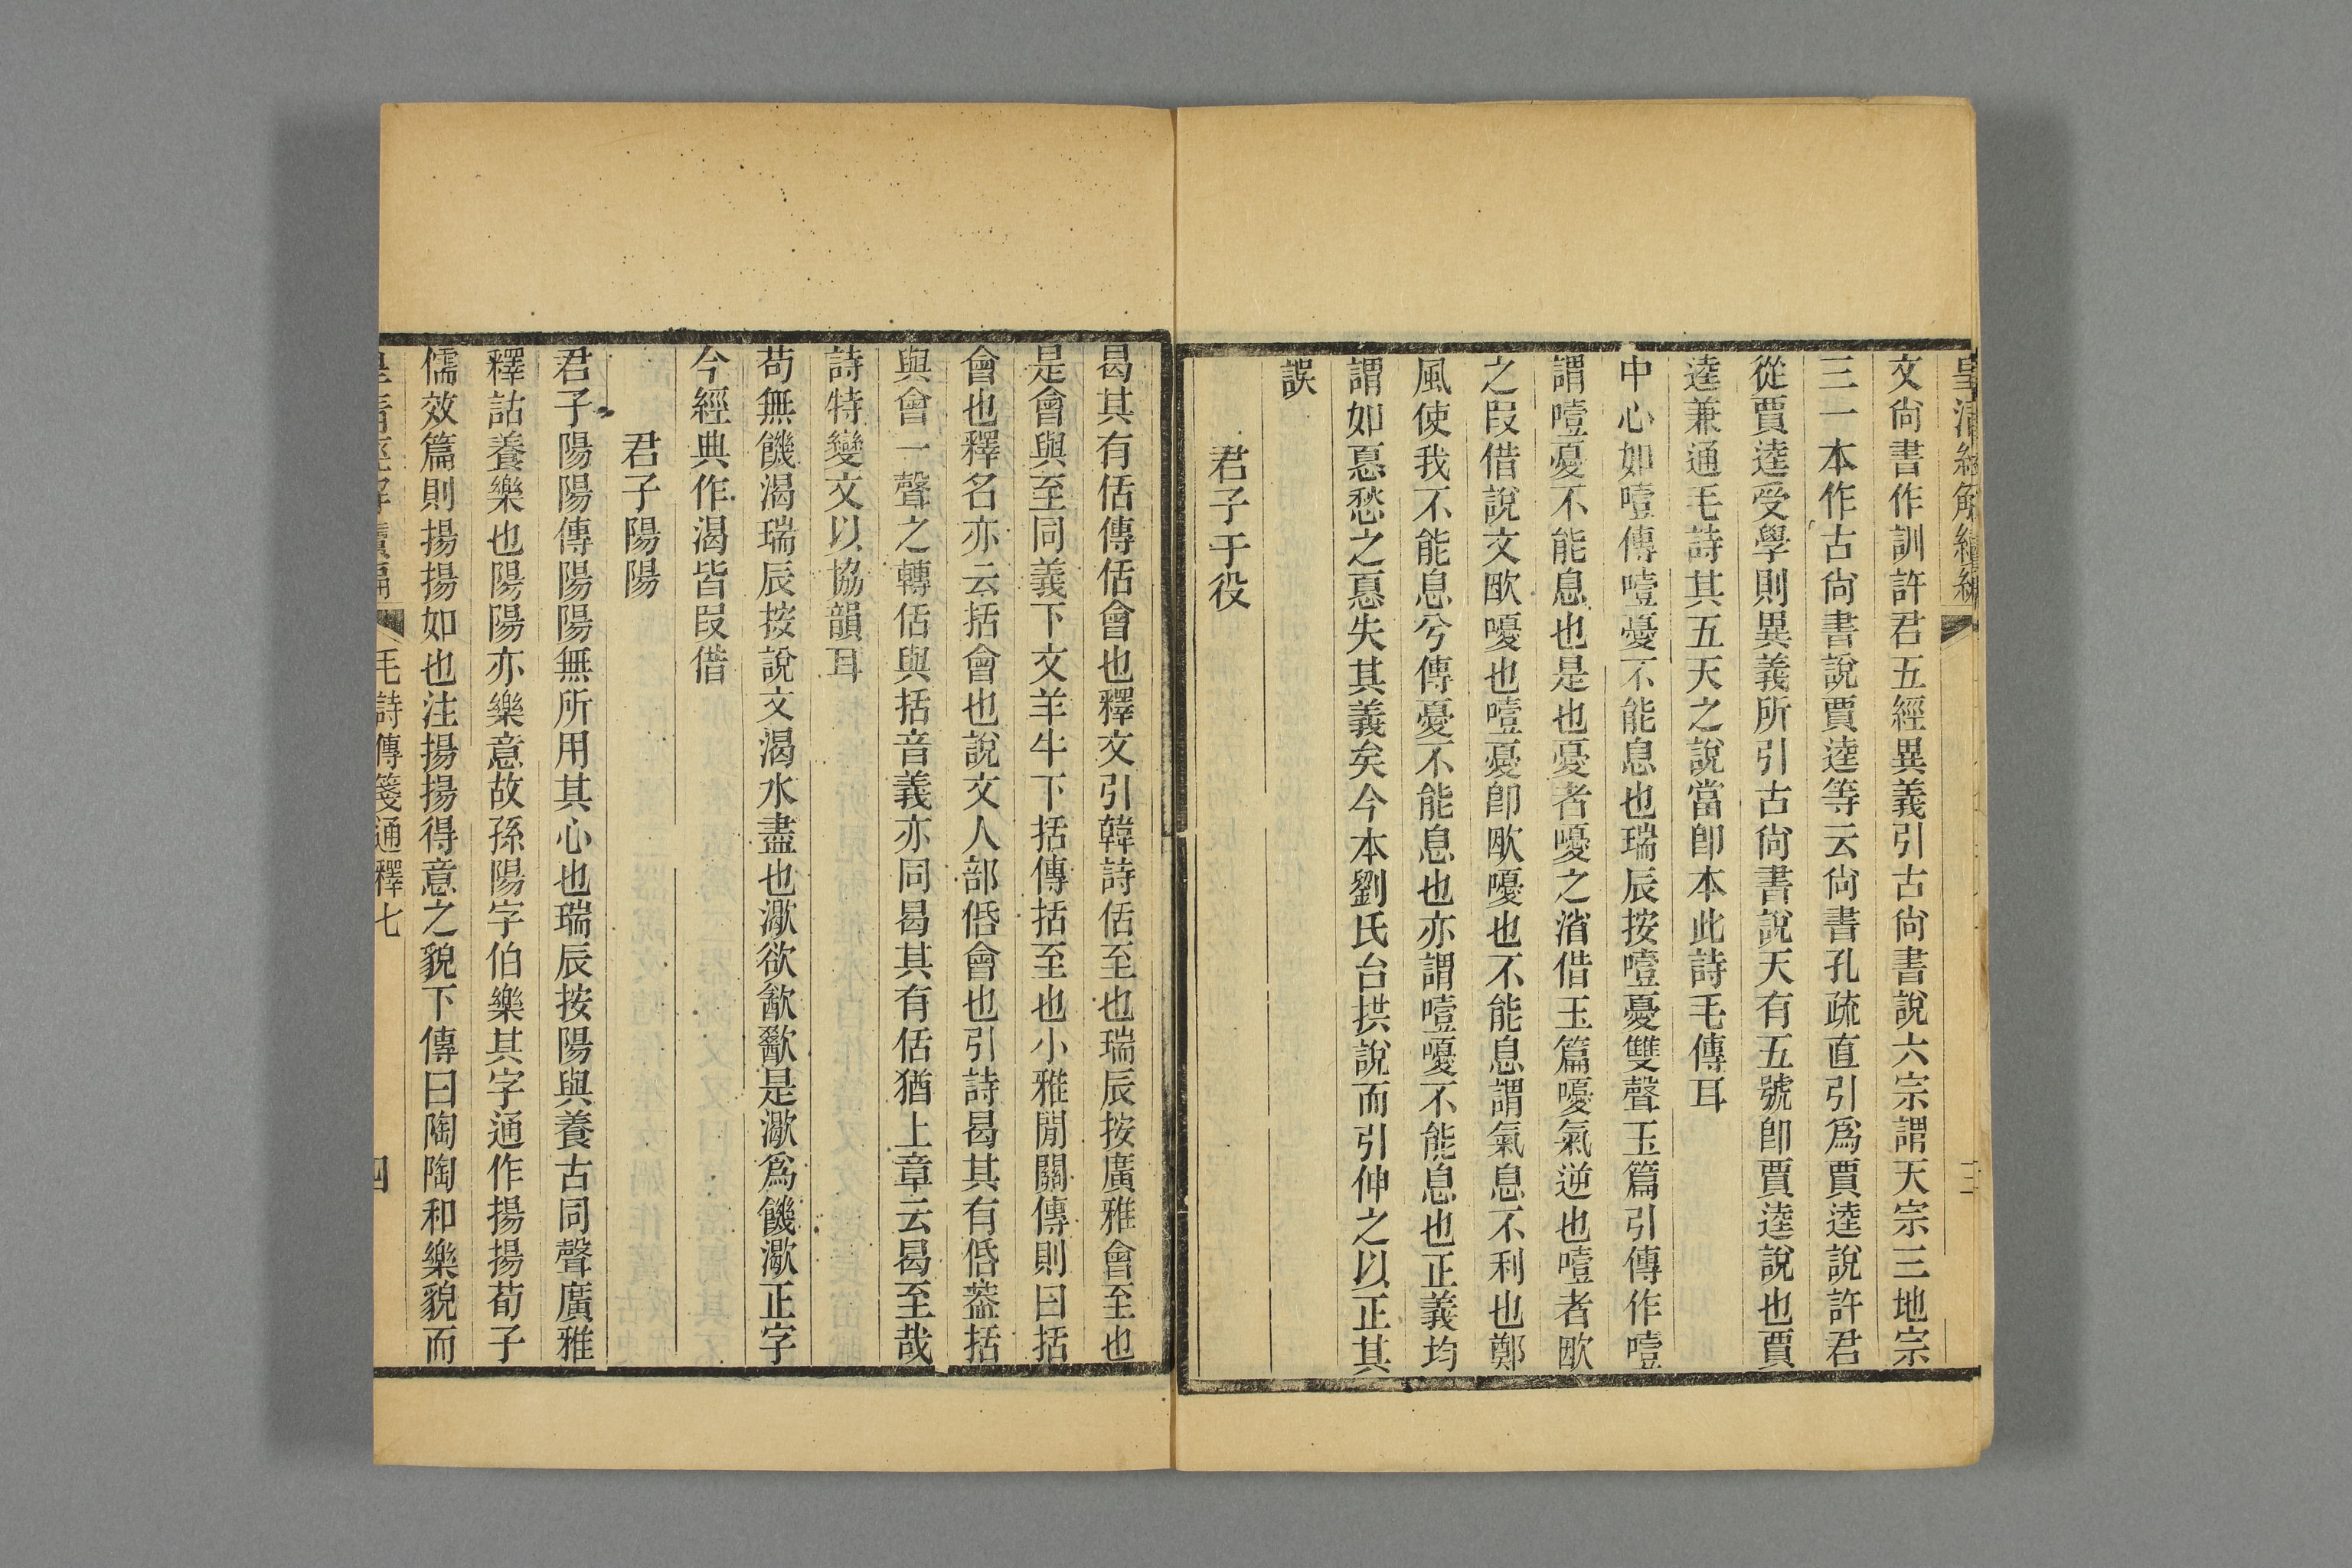 皇清經解續編
三
文尙書作訓許君五經異義引古尙書說六宗謂天宗三地宗
三一本作古尙書說賈逵等云尙書孔疏直引爲賈逵說許君
從賈逵受學則異義所引古尙書說天有五號卽賈逵說也賈
逵兼通毛詩其五天之說當卽本此詩毛傳耳
中心如噎傳噎憂不能息也瑞辰按噎憂雙聲玉篇引傳作噎
謂噎憂不能息也是也憂者嚘之渻借玉篇嚘氣逆也噎者歐
之叚借說文歐嚘也噎憂卽歐嚘也不能息謂氣息不利也鄭
風使我不能息兮傳憂不能息也亦謂噎嚘不能息也正義均
謂如惪愁之惪失其義矣今本劉氏台拱說而引伸之以正其
誤
君子于役
曷其有佸傳佸會也釋文引韓詩佸至也瑞辰按廣雅會至也
是會與至同義下文羊牛下括傳括至也小雅閒關傳則曰括
會也釋名亦云括會也說文人部佸會也引詩曷其有佸葢括
與會一聲之轉佸與括音義亦同曷其有佸猶上章云曷至哉
詩特變文以協韻耳
苟無饑渴瑞辰按說文渴水盡也㵣欲歠歠是㵣爲饑㵣正字
今經典作渴皆叚借
君子陽陽
君子陽陽傳陽陽無所用其心也瑞辰按陽與養古同聲廣雅
釋詁養樂也陽陽亦樂意故孫陽字伯樂其字通作揚揚荀子
儒效篇則揚揚如也注揚揚得意之貌下傳曰陶陶和樂貌而
皇清經解續編
毛詩傳箋通釋七
四